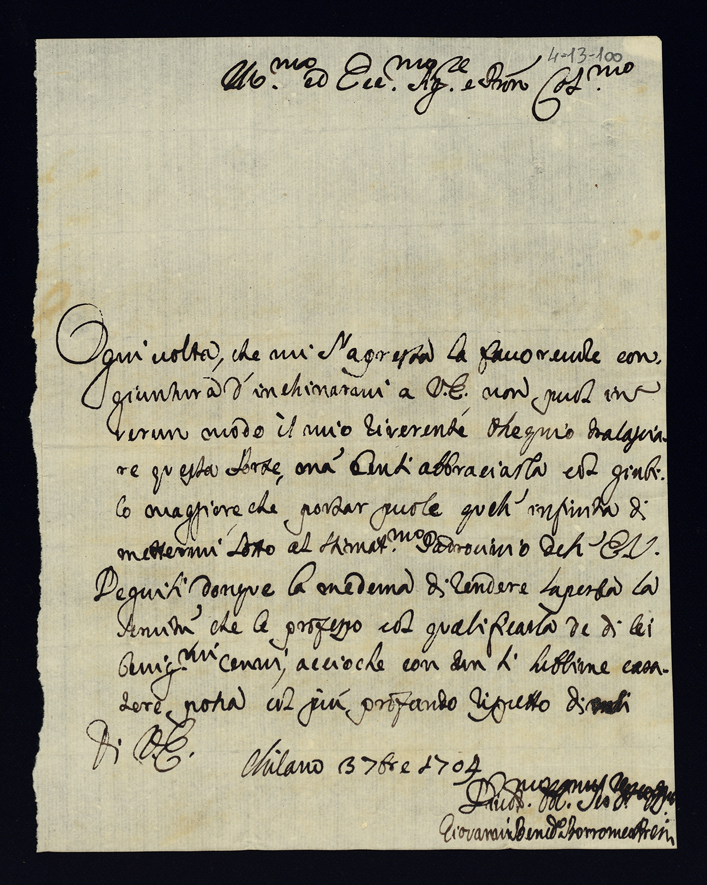 4-13-100
Ill.mo ed Ecc.mo Sig.re e Pron Col.mo
Ogni volta, che mi s'apresta la favorevole con,
giuntura d'inchinarmi a V.E. non puol in
verun modo il mio riverente Ossequio tralascia,
re questa sorte, ma benti abbraciarla col giubi,
lo maggiore che portar puole quest' infinita di
mettermi sotto al stimat.mo Padrocinio dell' E.V.
Seguiti donque la medema di rendere saperba la
servitù che le professo col qualificarla de di lei
benig.mi cenni, accioche con un si sublime cara,
tere, possa col più profondo rispetto di
Di V.E.
Milano 3 7bre 1704
Giovanni Bened. Borromeo Aresi